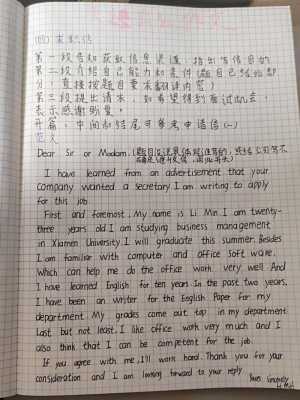 (四) 求职信
第一段告知获取信息渠道，指出写信目的
第二段介绍自己能力和条件(题目已给出部
分，直接按题目要求翻译内容)
第三段提出请求，如希望得到面试机会
表示感谢歉意。
开篇、中间和结尾可参考申请信(一)
范文
Dear Sir or Madam,
I have learned from an advertisement that your
company wanted a secretary. I am writing to apply
for this job.
First and foremost, My name is Li Min. I am twenty-
three years old. I am studying business management
in Xiamen University. I will graduate this summer. Besides
I am familiar with computer and office software.
Which can help me do the office work very well. And
I have learned English for ten years. In the past two years,
I have been an writer for the English Paper for my
department. My grades come out top in my department.
Last but not least, I like office work very much and I
also think that I can be competent for the job.
If you agree with me, I'll work hard. Thank you for your
consideration and I am looking forward to your reply
Yours Sincerely
Li Min